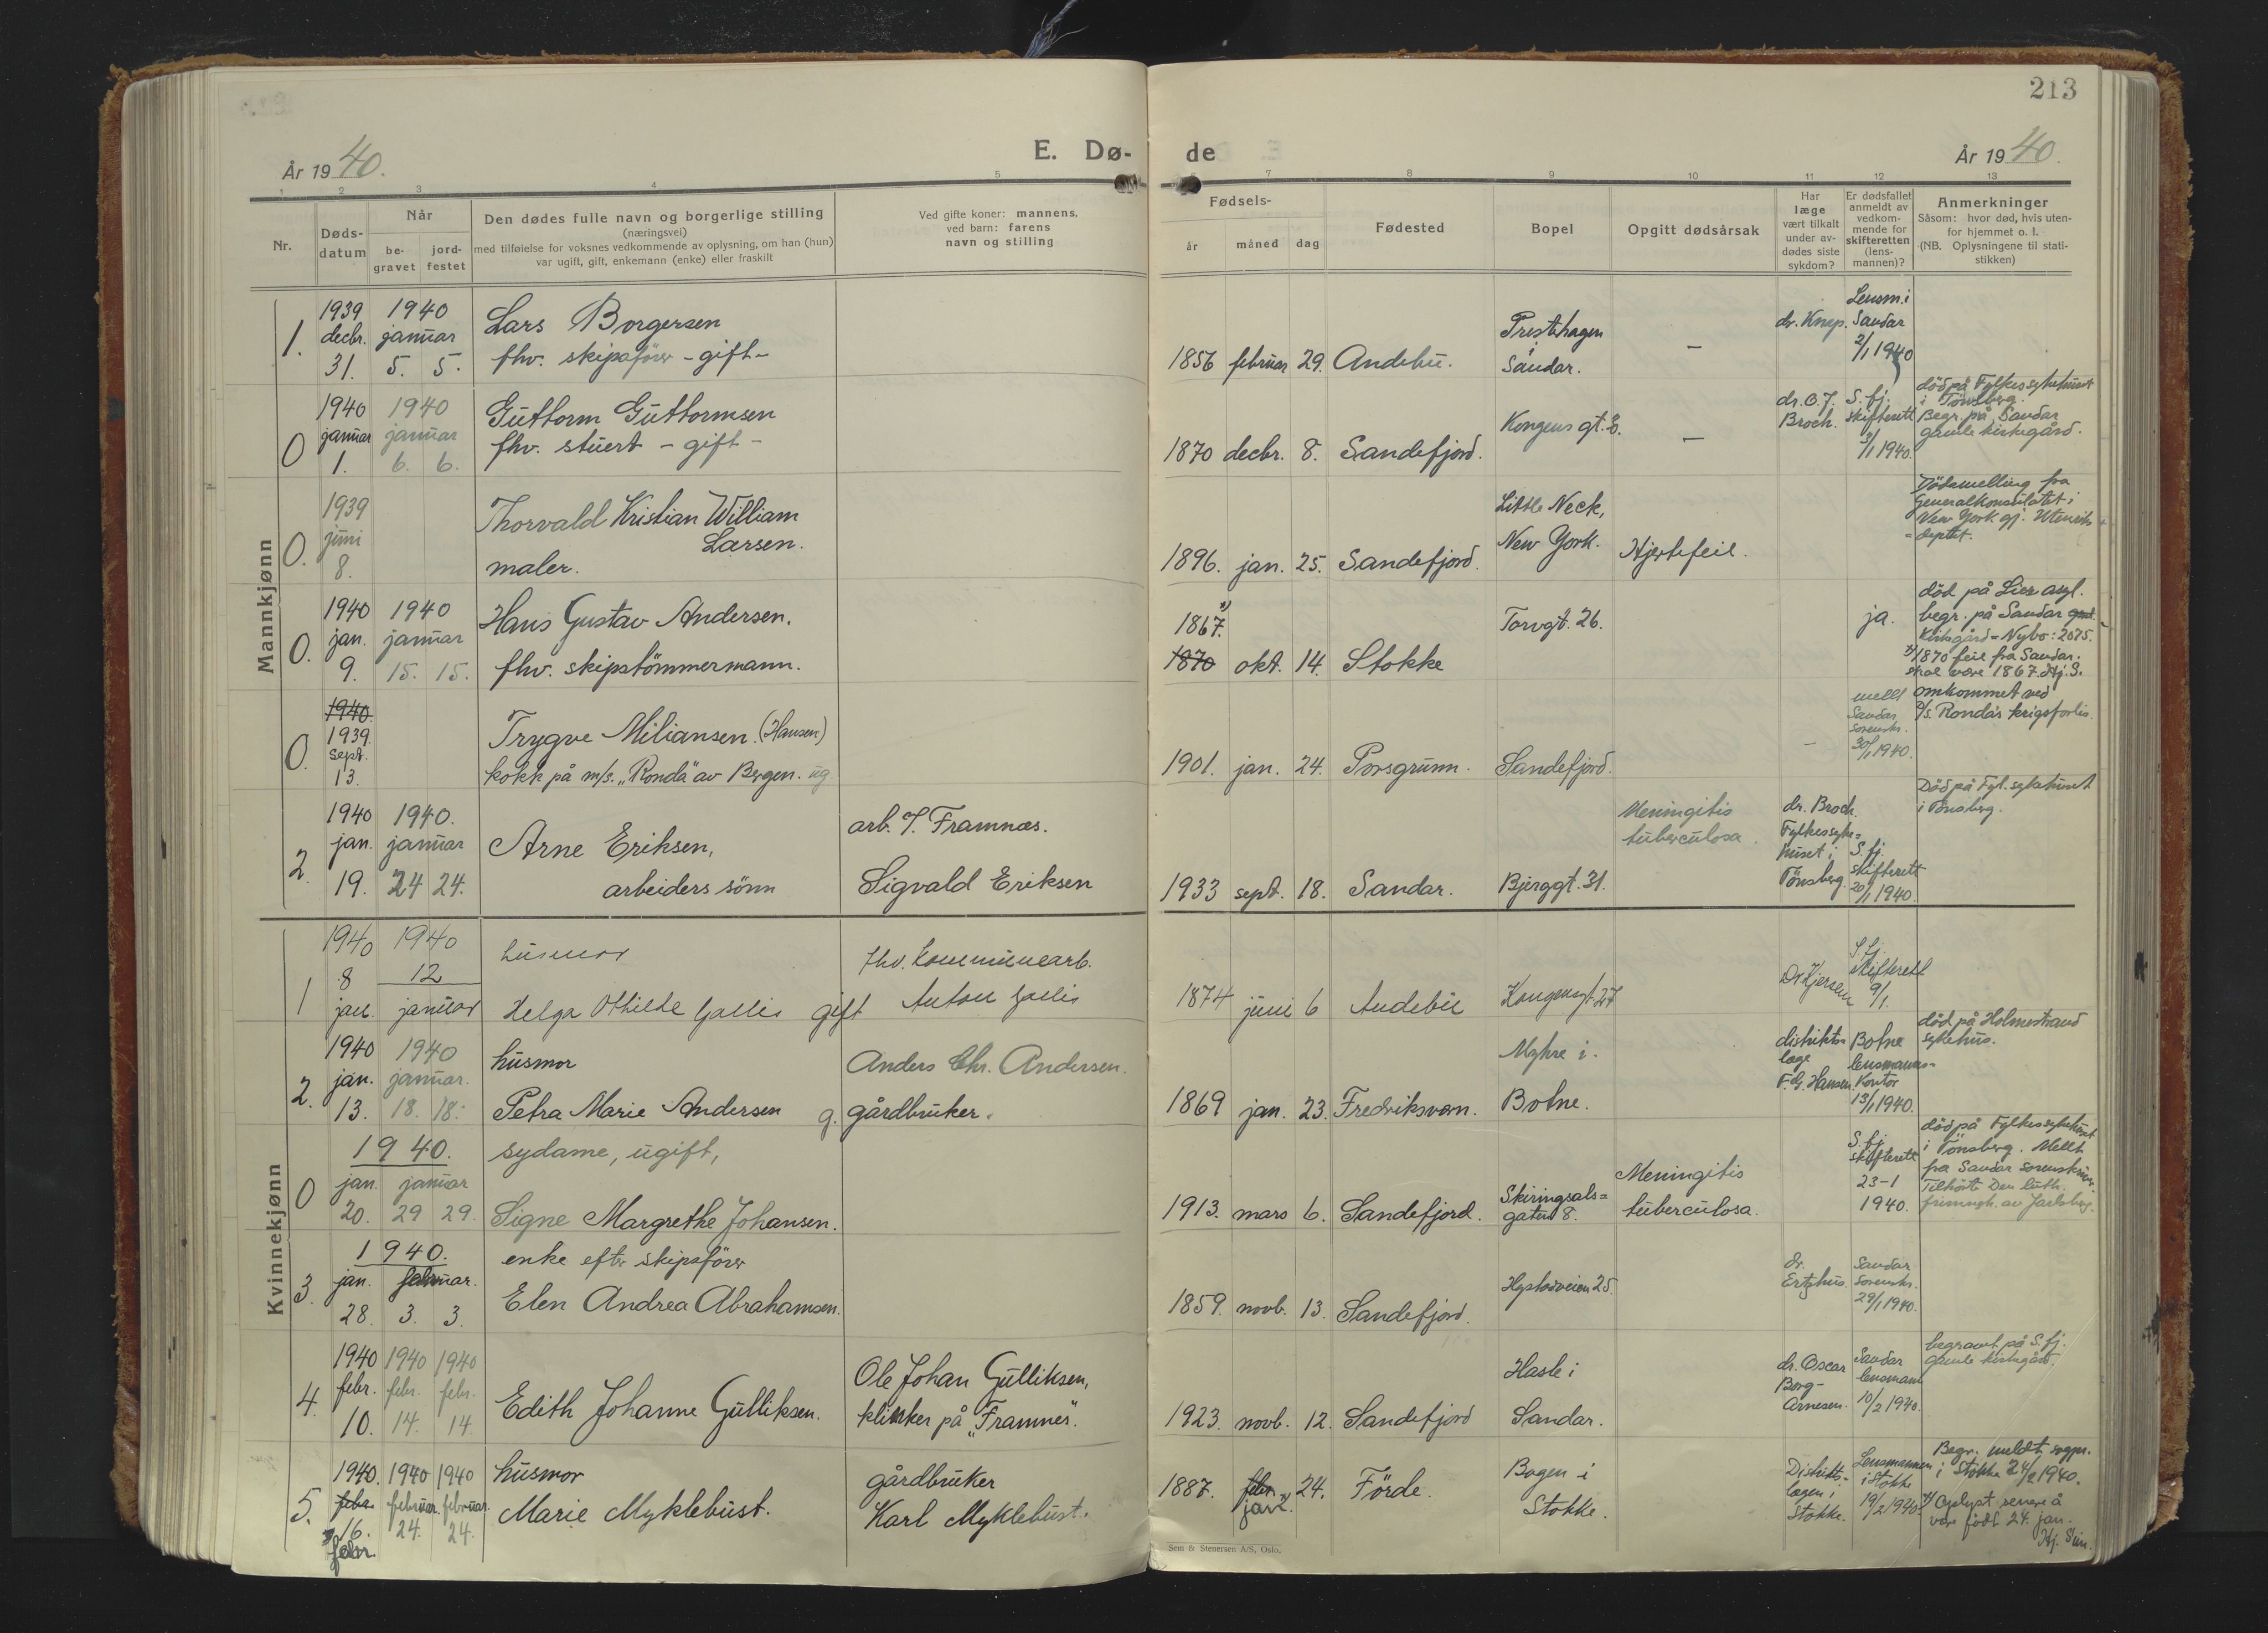 213
År 1940.
E. Dø-
de
År 1940.
1 2 3 4 5
7 8 9 10 11 12 13
Nr.
Døds-
datum
Når
be-
gravet
jord-
festet
Den dødes fulle navn og borgerlige stilling
(næringsvei)
med tilføielse for voksnes vedkommende av oplysning, om han (hun)
var ugift, gift, enkemann (enke) eller fraskilt
Ved gifte koner: mannens,
ved barn: farens
navn og stilling
Fødsels-
år måned dag
Fødested
Bopel
Opgitt dødsårsak
Har
læge
vært tilkalt
under av-
dødes siste
sykdom?
Er dødsfallet
anmeldt av
vedkom-
mende for
skifteretten
(lens-
mannen)?
Anmerkninger
Såsom: hvor død, hvis uten-
for hjemmet o. l.
(NB. Oplysningene til stati-
stikken)
Mannkjønn
1.
1939
decbr.
31.
1940
januar
5. 5.
Lars Borgersen
fhv. skipsfører - gift -
1856 februar 29. Andebu.
Prestehagen
i
Sandar.
—
dr. Knap.
Lensm. i
Sandar
2/1 1940
0
1940
januar
1.
1940
januar
6. 6.
Guttorm Guttormsen
fhv. stuert - gift -
1870 decbr. 8. Sandefjord.
Kongens gt.
—
dr. O. J.
Broch.
S. fj.
skifterett
3/1 1940.
død på Fylkessykehuset
i Tønsberg.
Begr. på Sandar
gamle kirkegård.
0.
1939
juni
8.
Thorvald Kristian William
Larsen.
maler.
1896. jan. 25. Sandefjord.
Little Neck,
New York.
Hjertefeil.
Dødsmelling fra
Generalkonsulatet i
New York gj. Utenriks
= deptet.
0.
1940
jan.
9.
1940
januar
15. 15.
Hans Gustav Andersen.
fhv. skipstømmermann.
1867.
1870 okt. 14. Stokke
Torvgt. 26.
ja.
død på Lier asyl.
begr. på Sandar
Kirkegård = Nybo: 2075.
1870 feil fra Sandar.
skal være 1867. Hj. S.
0.
1940.
1939.
sept.
13.
Trygve Miliansen. (Hansen)
kokk på m/s. „Ronda" av Bergen. ug
1901. jan. 24. Porsgrunn. Sandefjord.
—
mellt
Sandar
sorenskr.
30/1 1940.
omkommet ved
Ronda's krigsforlis.
2.
1940
jan.
19.
1940.
januar
24 24.
Arne Eriksen,
arbeiders sønn
arb. Framnæs.
Sigvald Eriksen
1933 sept. 18. Sandar. Bjerggt. 31.
Meningitis
tuberculosa.
dr. Broch.
Fylkessyke=
huset i
Tønsberg.
S. fj.
skifterett
20/1 1940.
Død på Fyl. sykehuset
i Tønsberg.
Kvinnekjønn
1
1940
8
jan.
1940
12
januar
husmor
Helga Othilde Gallis gift
fhv. kommunearb.
Anton Gallis
1874 juni 6 Andebu Kongensgt. 27
S. fj.
skifterett
9/1.
2.
1940
jan.
13.
1940
januar.
18. 18.
husmor
Petra Marie Andersen g.
Anders Chr. Andersen.
gårdbruker.
1869 jan. 23. Fredriksvern.
Myhre i.
Botne.
distrikts=
læge
F. G. Hansen.
Botne
lensmanns=
Kontor
13/1 1940.
død på Holmestrand
sykehus.
0
1940.
jan. januar
20. 29 29.
sydame, ugift,
Signe Margrethe Johansen.
1913. mars 6. Sandefjord.
Skiringsals=
gaten 8.
Meningitis
tuberculosa.
S. fj.
skifterett
23-1
1940.
død på Fylkessykehuset
i Tønsberg. Mellt
fra Sandar sorenskriver.
Tilhørte Den luth.
frimengh. av Jarlsberg.
3.
1940.
jan. februar.
28. 3. 3.
enke efter skipsfører
Elen Andrea Abrahamsen.
1859. novb. 13. Sandefjord.
Hystadveien 25.
dr.
Ertzhus.
Sandar
Sorenskr.
29/1 1940.
4.
1940 1940 1940
febr. febr. febr.
10. 14. 14
Edith Johanne Gulliksen.
Ole Johan Gulliksen,
klinker på „Framnes".
1923. novb. 12. Sandefjord
Hasle i
Sandar.
dr. Oscar
Borg-
Arnesen.
Sandar
lensmann
10/2 1940.
begravet på S. fj.
gamle kirkegård.
5.
1940. 1940 1940
febr. februar. februar.
16. 24. 24.
febr.
husmor
Marie Myklebust.
gårdbruker
Karl Myklebust.
1887. febr. 24. Førde.
jan.
Bogen i
Stokke.
Distrikts-
lægen i
Stokke.
Lensmannen
i Stokke
19/2 1940.
Begr. meldt sogpr.
i Stokke 24/2 1940.
Oplyst senere å
være født 24. jan.
Sem & Stenersen A/S, Oslo.